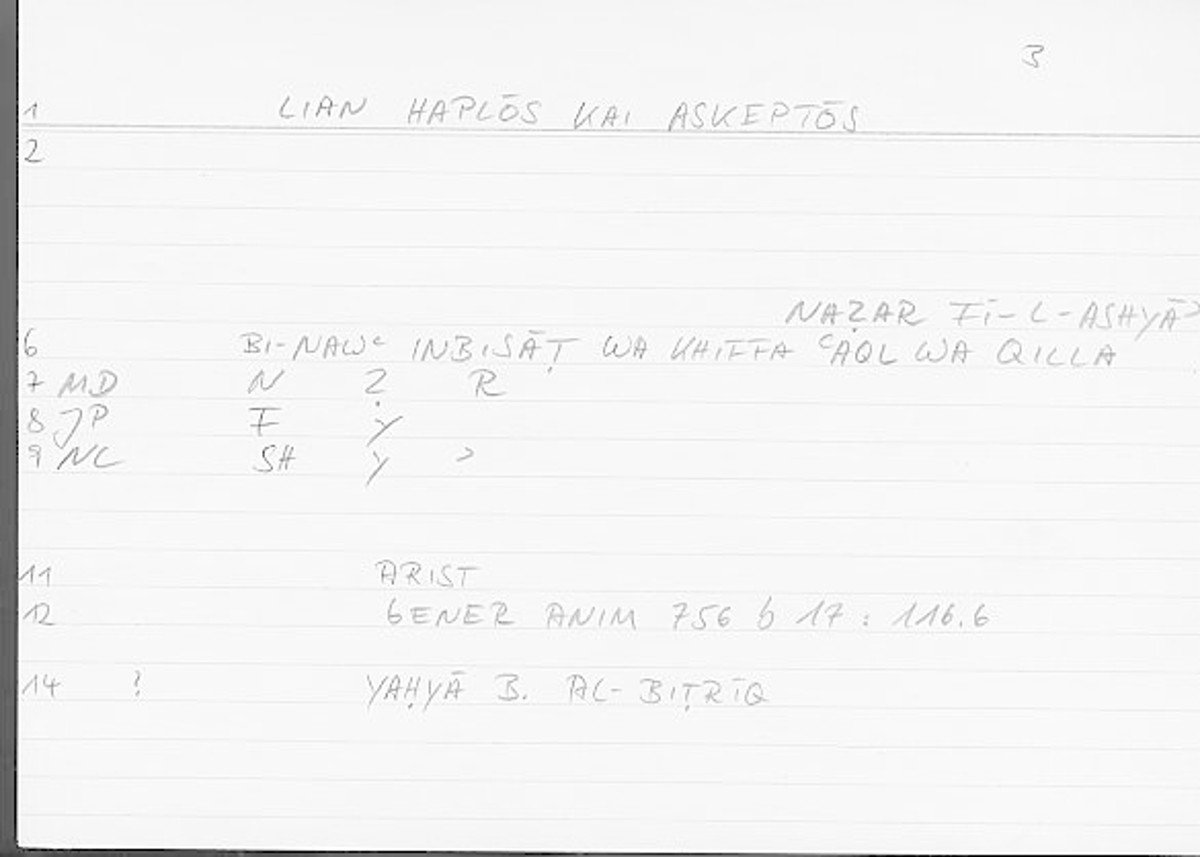 3
1 LIAN HAPLŌS KAI ASKEPTŌS
2
NAẒAR FĪ-L-ASHYĀʾ
6 BI-NAWʿ INBISĀṬ WA KHIFFA ʿAQL WA QILLA
7 MD N Ẓ R
8 JP F Y
9 NC SH Y ʾ
11 ARIST
12 GENER ANIM 756 b 17 : 116.6
14 ? YAḤYĀ B. AL-BIṬRĪQ